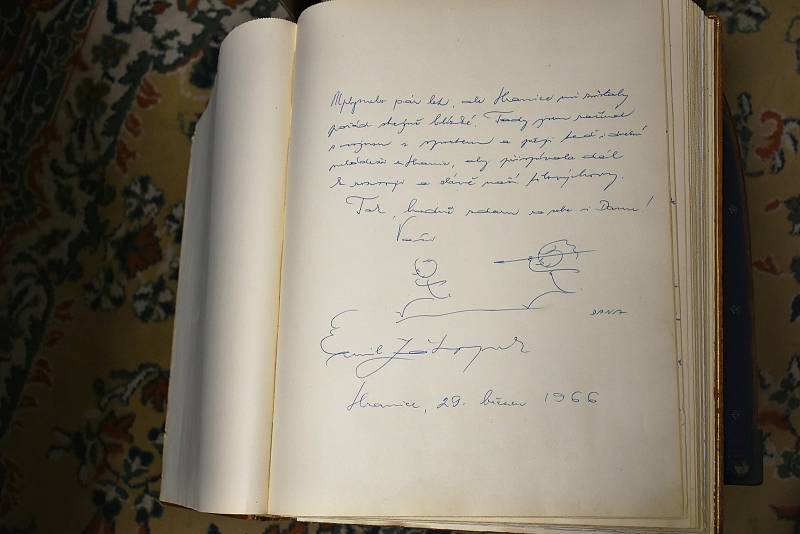 Uplynulo pár let, ale Hranice mi zůstaly
pořád stejně blízké. Tady jsem začínal
s vojnou i sportem a přeji teď i dnešní
mládeži z Hranic, aby přispívala dál
k rozvoji a slávě naší tělovýchovy.
Tak, hodně zdaru za sebe i Danu!
Vaši
DANA
Emil Zátopek
Hranice, 29. březen 1966